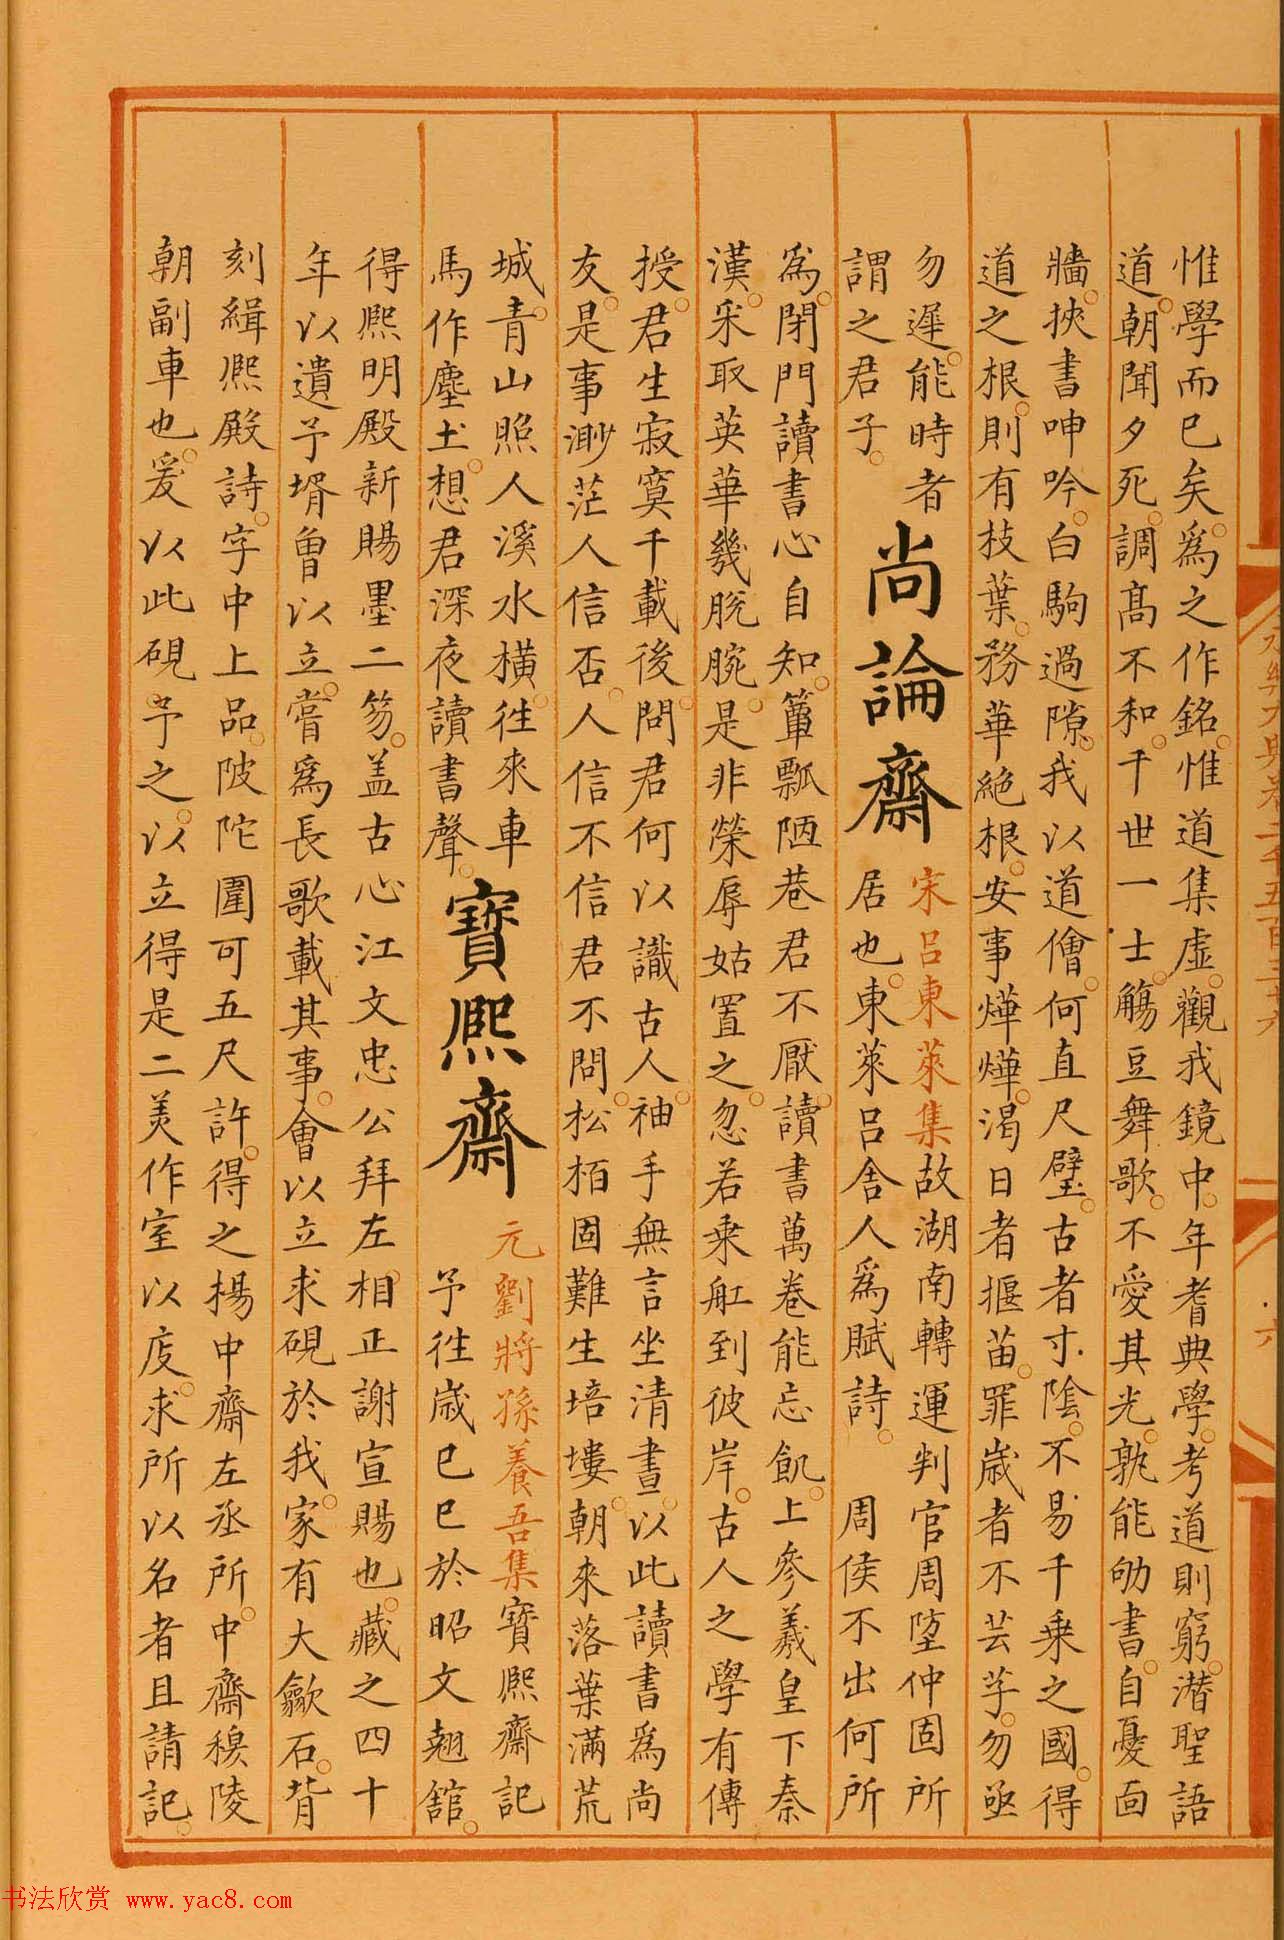 惟學而已矣爲之作銘惟道集虛觀我鏡中年耆典學考道則窮潛聖語
道朝聞夕死調髙不和千世一士觴豆舞歌不愛其光孰能劬書自憂面
牆挾書呻吟白駒過隙我以道儈何直尺璧古者寸陰不易千乗之國得
道之根則有枝葉務華絶根安事燁燁渴日者揠苗罪歳者不芸芓勿亟
勿遲能時者
謂之君子
尚論齋
宋呂東萊集故湖南轉運判官周堕仲固所
居也東萊呂舍人爲賦詩 周侯不出何所
爲閉門讀書心自知簞瓢陋巷君不厭讀書萬卷能忘飢上參羲皇下秦
漢采取英華幾脫腕是非榮辱姑置之忽若乗舡到彼岸古人之學有傳
授君生寂寞千載後問君何以識古人袖手無言坐清晝以此讀書爲尚
友是事渺茫人信否人信不信君不問松栢固難生培塿朝來落葉滿荒
城青山照人溪水橫徃來車
馬作塵土想君深夜讀書聲
寶熈齋
元劉將孫養吾集寶熈齋記
予徃歳已巳於昭文翹舘
得熈明殿新賜墨二笏盖古心江文忠公拜左相正謝宣賜也藏之四十
年以遺予壻曾以立嘗爲長歌載其事會以立求硯於我家有大歙石背
刻緝熈殿詩字中上品陂陀圍可五尺許得之楊中齋左丞所中齋穆陵
朝副車也爰以此硯予之以立得是二美作室以庋求所以名者且請記
书法欣赏 www.yac8.com